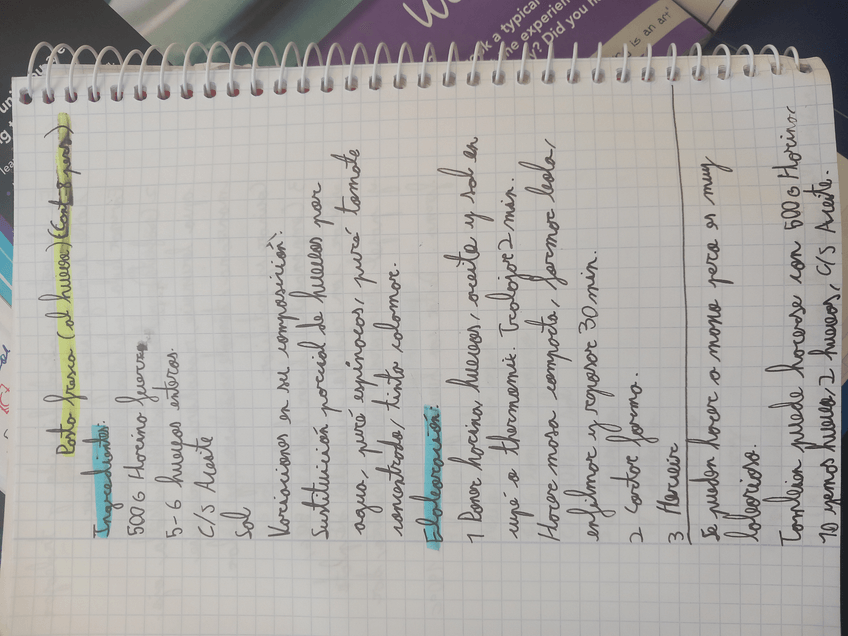 Pasta fresca (al huevo) (Cant. 8 pers)
Ingredientes:
500 G Harina fuerza
5-6 huevos enteros.
C/S Aceite
Sal
Variaciones en su composición:
Sustitución parcial de huevos por
agua, puré espinacas, puré tomate
concentrado, tinta calamar.
Elaboración:
1 Poner harina, huevos, aceite y sal en
cupé o thermomix. Trabajar 2 min.
Hacer masa compacta, formar bola,
enfilmar y reposar 30 min.
2 Cortar forma.
3 Hervir
Se pueden hacer a mano pero es muy
laborioso.
También puede hacerse con 500 G Harina,
10 yemas huevo, 2 huevos, C/S Aceite.
k a typical
he experien
y? Did you
is an art